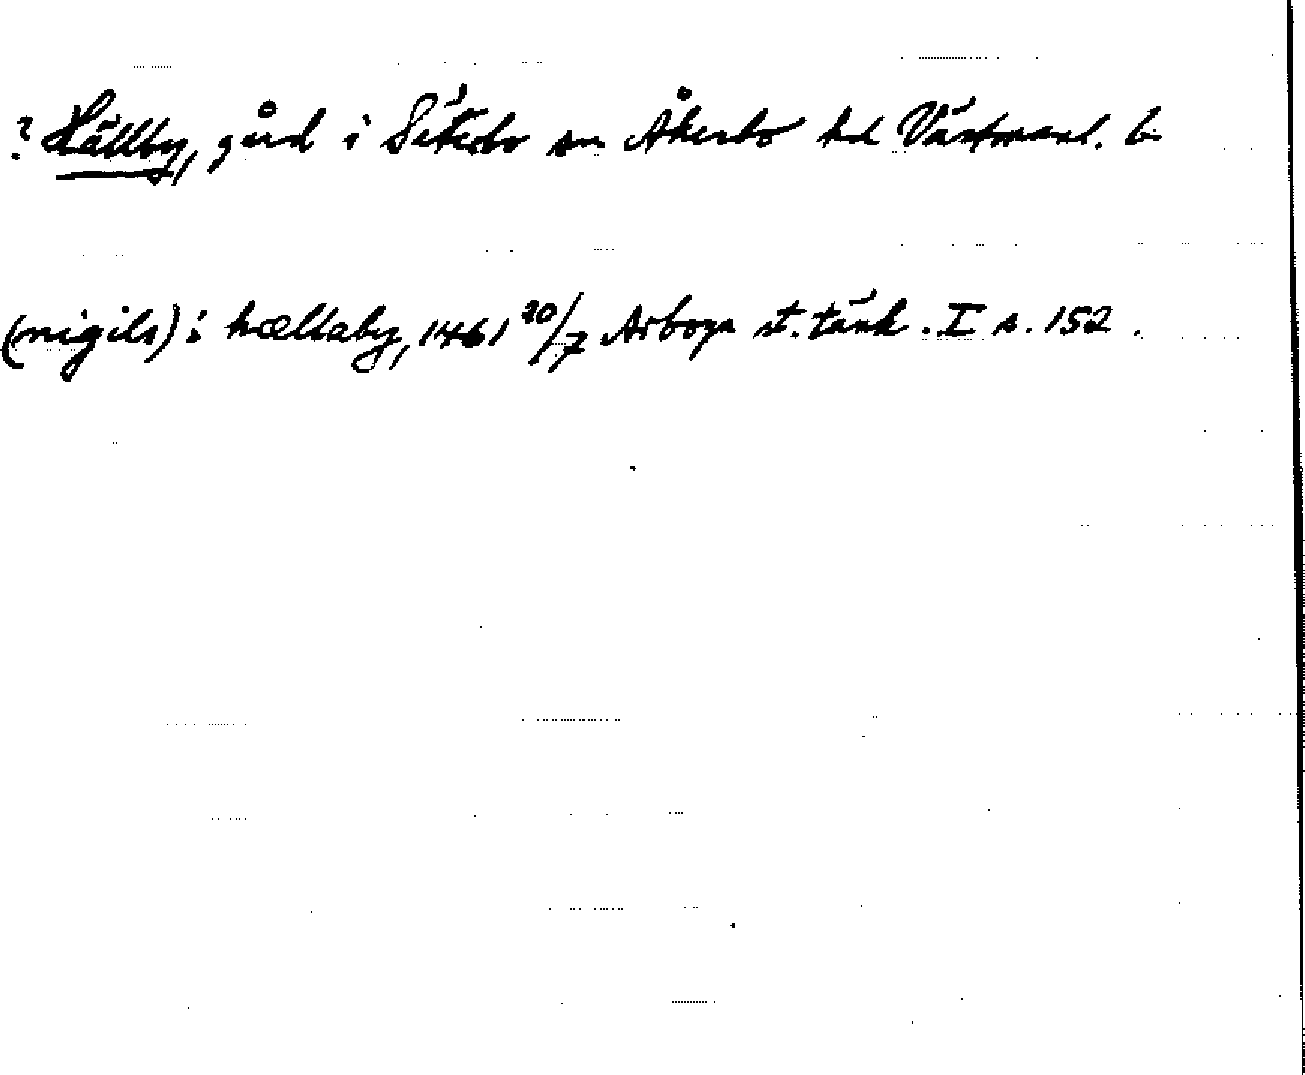 ? Hällby, gård i Säterbo sn Åkerbo hd Västmanl. l.
(nigils) i hællaby, 1461 20/7 Arboga st. tänk. I s. 152.